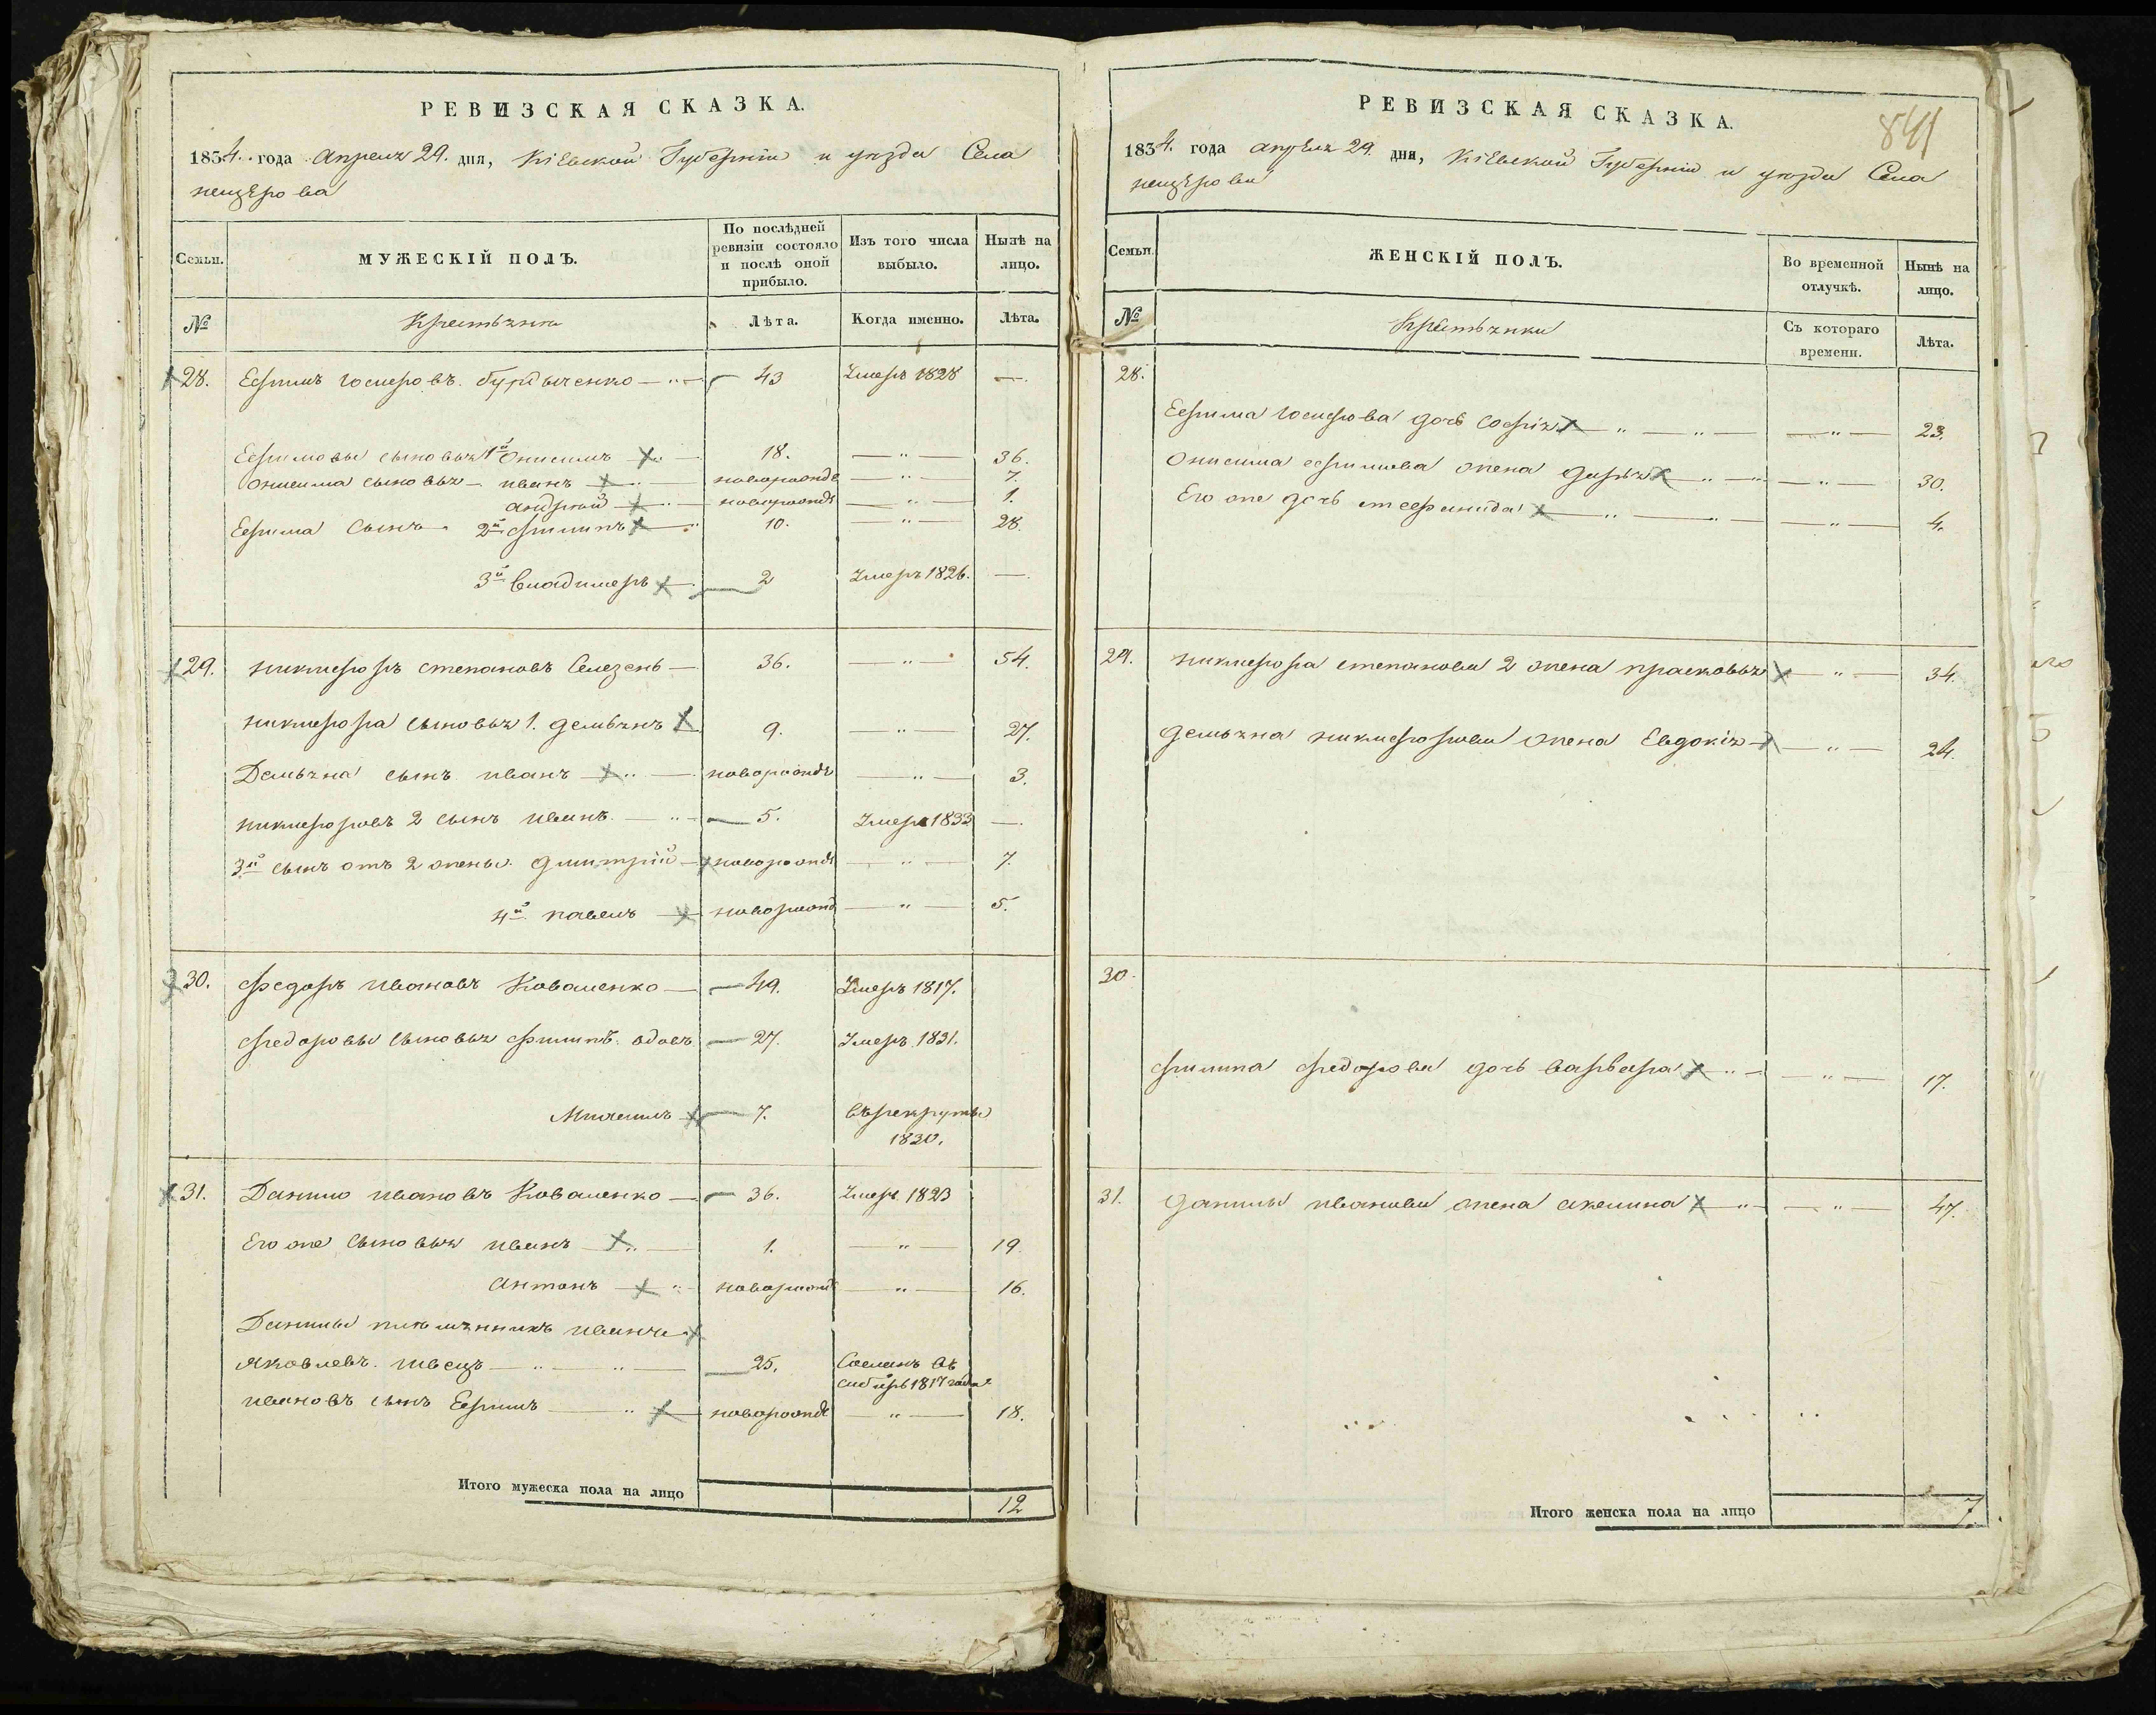 РЕВИЗСКАЯ СКАЗКА.
1834. года Апреля 29. дня, Кіевской Губерніи и уезда Села
пещерова
Семьи.
МУЖЕСКІЙ ПОЛЪ.
По послѣдней ревизіи состояло и послѣ оной прибыло.
Изъ того числа выбыло.
Нынѣ на лицо.
№
Крестьяне
Лѣта.
Когда именно.
Лѣта.
28. Ефимъ іосифовъ 43 Умеръ 1828 —
Ефимовы сыновья 1й Онисимъ 18. — " — 36.
Онисима сыновья иванъ новорожде — " — 7.
андрей новорожде — " — 1.
Ефима сынъ 2й филипъ 10. — " — 28.
3й владимеръ 2 Умеръ 1826. —
29. никифоръ степановъ Селезень — 36. — " — 54.
никифора сыновья 1. демьянъ 9. — " — 27.
Демьяна сынъ иванъ новорожде — " — 3.
никифоровъ 2 сынъ иванъ — 5. Умеръ 1833 —
3й сынъ отъ 2 жены дмитрій новорожде — " — 7.
4й павелъ новорожд — " — 5.
30. федоръ ивановъ Коваленко — 49. Умеръ 1817.
федоровы сыновья филипъ вдовъ — 27. Умеръ 1831.
Михаилъ 7. въ рекруты
1830.
31. Данило ивановъ Коваленко — 36. Умеръ 1823
Его же сыновья иванъ 1. — " — 19.
антонъ новорожд — " — 16.
Данилы племянникъ иванъ
яковлевъ швецъ — " — " — 25. Сосланъ въ
сибирь 1817 года
ивановъ сынъ Ефимъ — " новорожде — " — 18.
Итого мужеска пола на лицо 12
841
РЕВИЗСКАЯ СКАЗКА.
1834. года апреля 29. дня, Кіевской Губерніи и уезда Села
пещерова
Семьи.
ЖЕНСКІЙ ПОЛЪ.
Во временной отлучкѣ.
Нынѣ на лицо.
№
Крестьянки
Съ котораго времени.
Лѣта.
28.
Ефима іосифова дочь софія — " — " — — " — 23.
Онисима ефимова жена дарья — " — " — " — 30.
Его же дочь стефанида — " — " — — " — 4.
29. никифора степанова 2 жена прасковья — " — 34.
демьяна никифорова жена Евдокія — " — 24.
30.
филипа федорова дочь варвара — " — — " — 17.
31. данилы иванова жена акелина — " — — " — 47.
Итого женска пола на лицо 7.